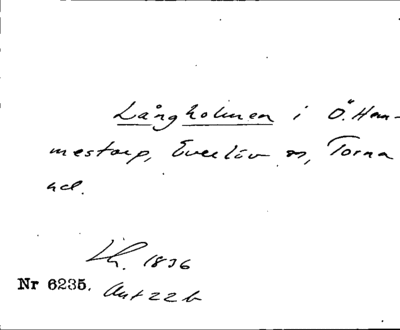 Långholmen i Ö. Ham-
mestorp, Everlöv sn, Torna
hd.
Lh. 1836
Nr 6235. Ant 22 b